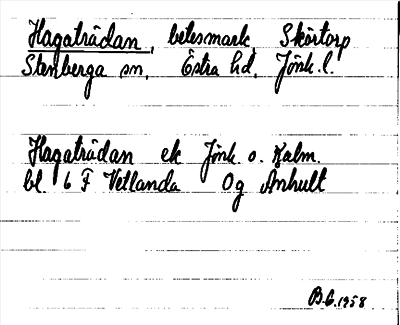 Hagaträdan, betesmark, Skörtorp
Stenberga sn, Östra hd, Jönk. l.
Hagaträdan ek Jönk. o. Kalm.
bl. 6 F Vetlanda Og Anhult
B.E. 1958